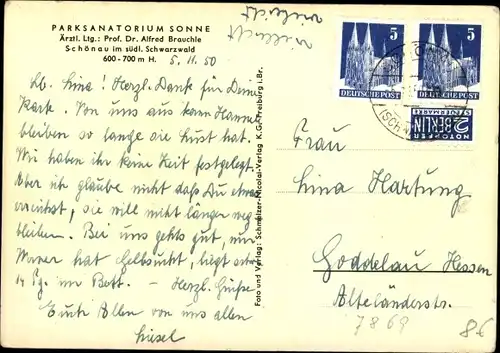 PARKSANATORIUM SONNE
Ärztl. Ltg.: Prof. Dr. Alfred Brauchle
Schönau im südl. Schwarzwald
600-700 m H.
5. 11. 50
vielleicht
vielleicht
Lb. Lina! Herzl. Dank für Deine
Karte. Von uns aus kann Hannel
bleiben so lange sie Lust hat.
Wir haben ihr keine Zeit festgelegt.
Aber ich glaube nicht daß Du etwas
erreichst, sie will nicht länger weg
bleiben. Bei uns gehts gut, nur
Werner hat Gelbsucht, liegt seit
14 Tg. im Bett. - Herzl. Grüße
Euch Allen von uns allen
Liesel
Foto und Verlag: Schmelzer-Nicolai-Verlag K.G. Freiburg i. Br.
5
DEUTSCHE POST
5
DEUTSCHE POST
NOTOPFER
2 BERLIN
STEUERMARKE
Frau
Lina Hartung
Goddelau Hessen
Alteländerstr.
7869
8€